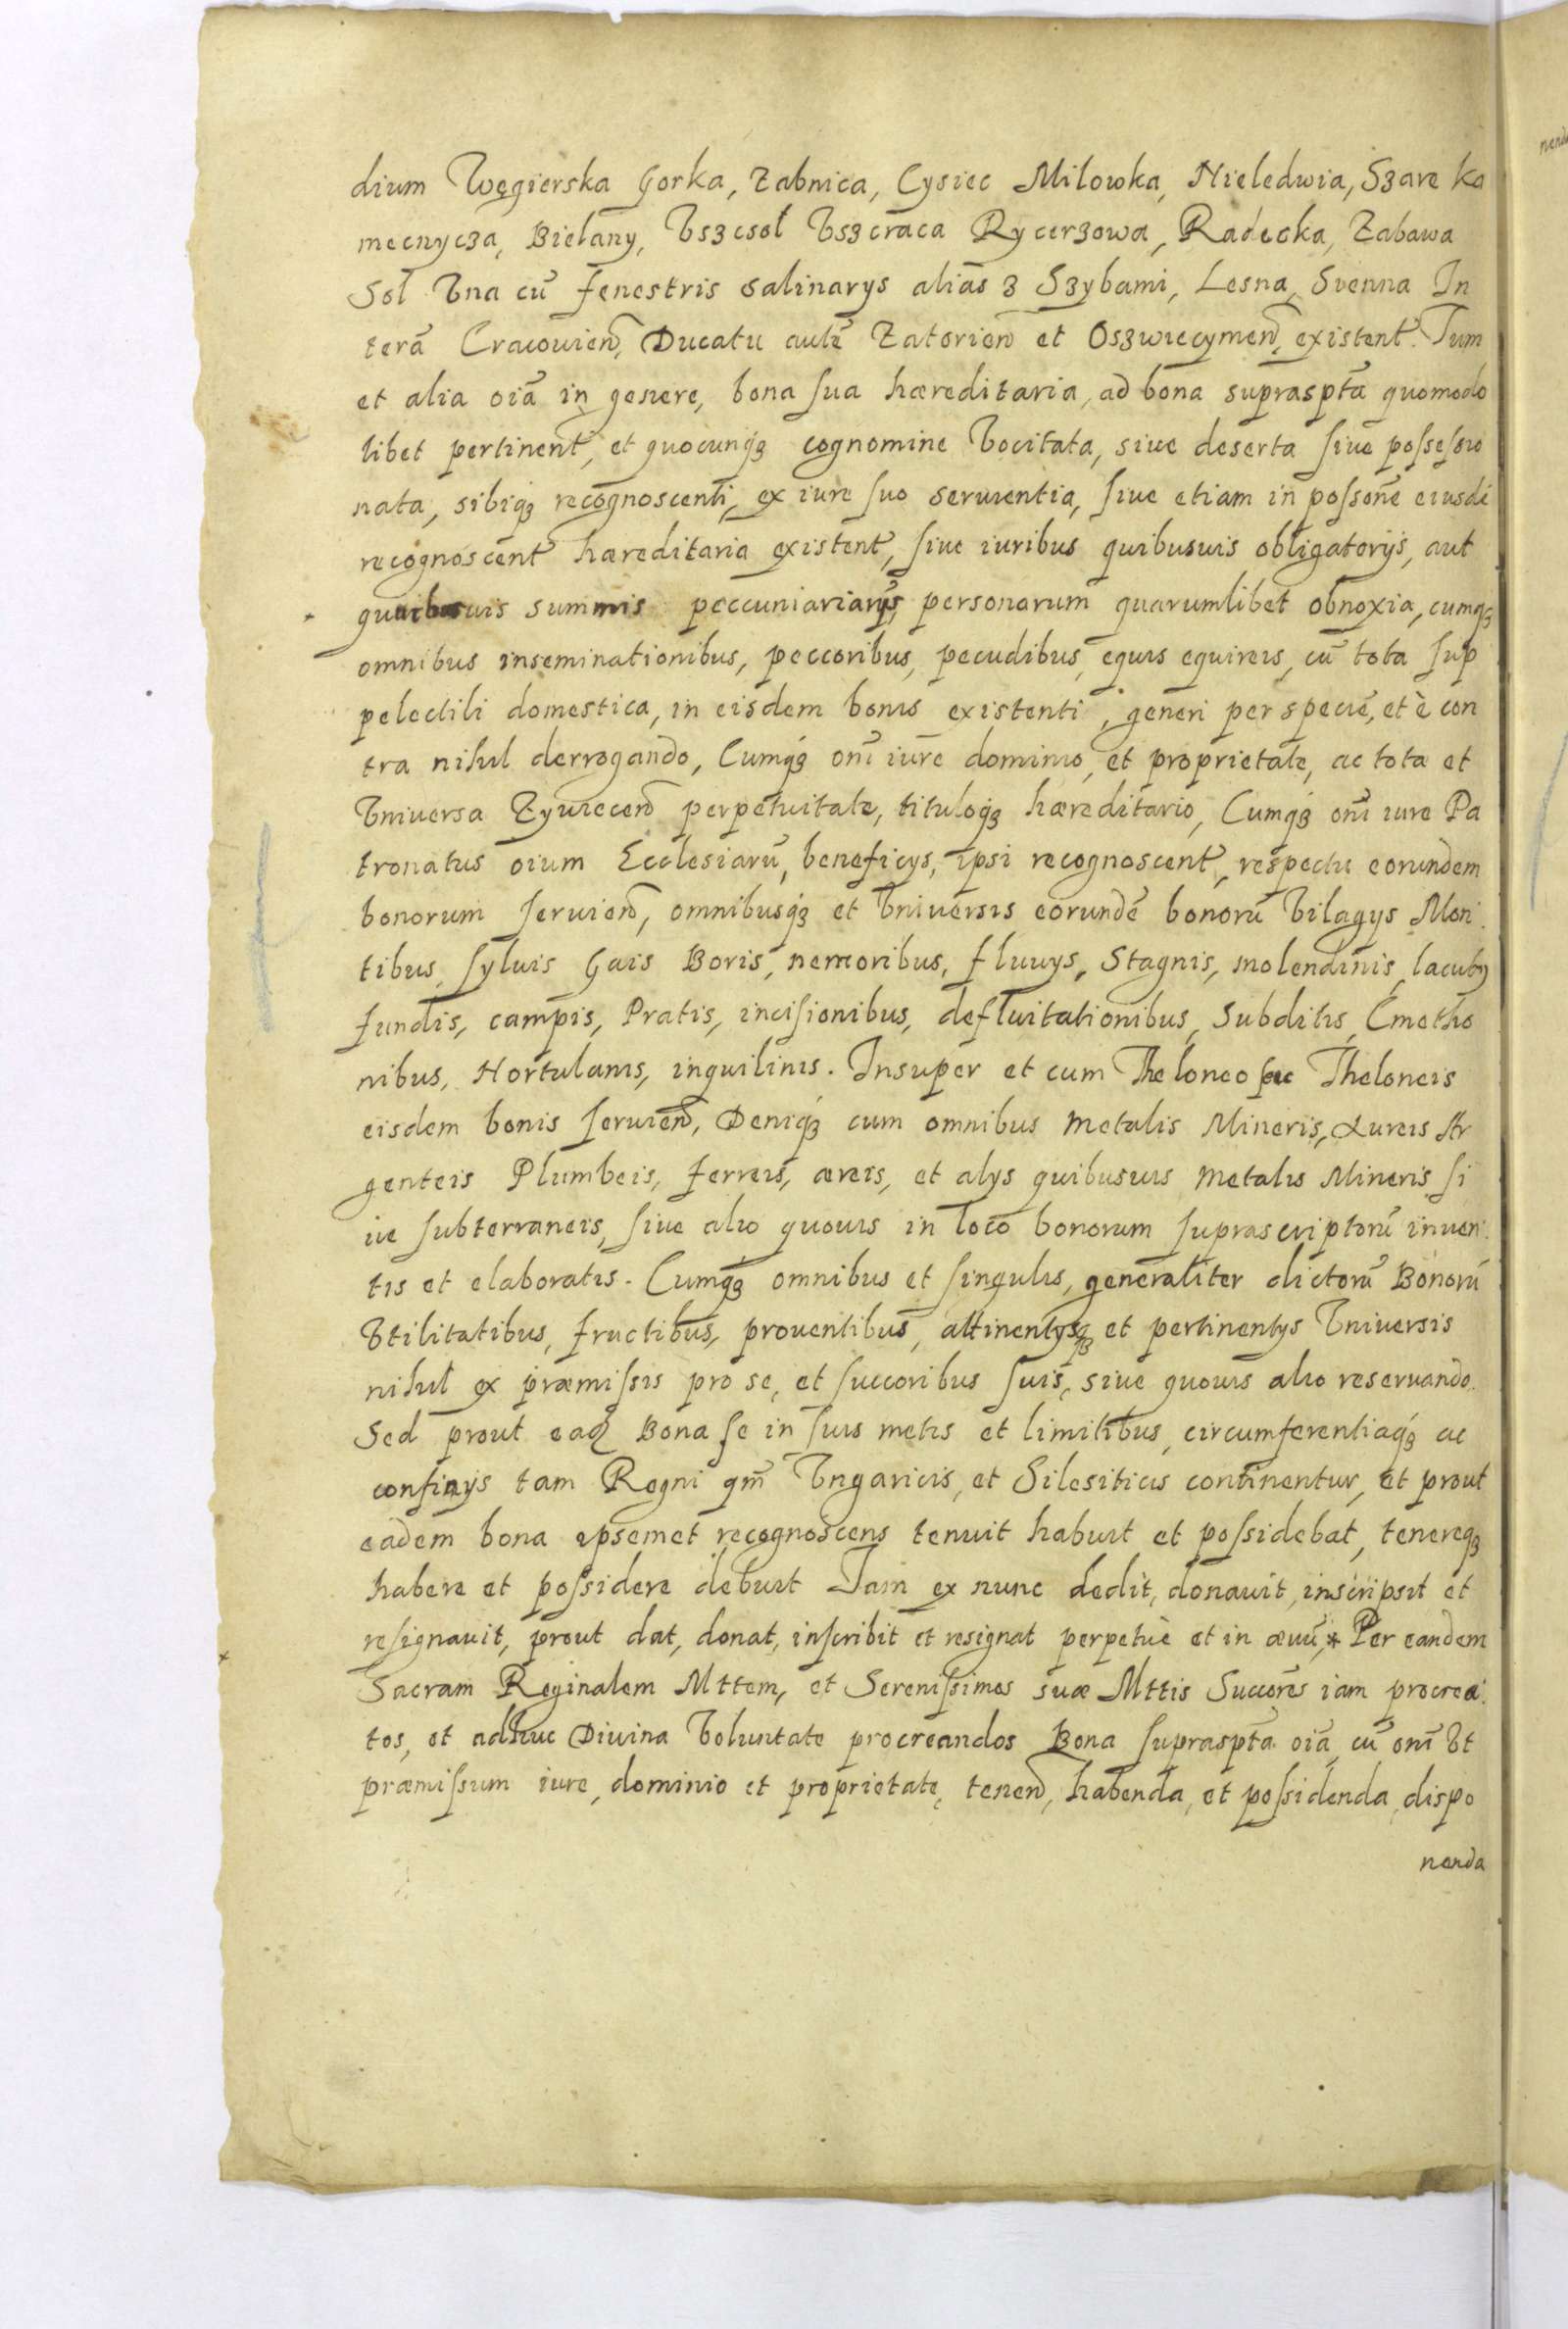 dium Węgierska Gorka, Zabnica, Cysiec Milowka, Nieledwia, Szare Ka
mecnycza, Bielany, Vszcsol Vszcraca Rycerzowa, Radecka, Zabawa
Sol Vna cũ fenestris salinarys alias z Szybami, Lesna, Sienna In
terã Cracouien, Ducatu autẽ Zatorien et Oszwiecymen, existent. Tum
et alia oiã in genere, bona sua hæreditaria, ad bona supraspta quomodo
libet pertinent, et quocunqꝫ cognomine Vocitata, siue deserta siue possessio
nata, sibiqꝫ recognoscenti, ex iure suo seruientia, siue etiam in possone eiusdẽ
recognoscent hæreditaria existent, siue iuribus quibusuis obligatorijs, aut
quibusuis summis peccuniariarijs, personarum quarumlibet obnoxia, cumqꝫ
omnibus inseminationibus, peccoribus, pecudibus, equis equireis, cũ tota sup
pelectili domestica, in eisdem bonis existenti, generi per speciẽ, et è con
tra nihil derrogando, Cumqꝫ oni iure dominio, et proprietate, ac tota et
Vniuersa Zywiecen perpetuitate, tituloqꝫ hæreditario, Cumqꝫ oni iure Pa
tronatus oium Ecclesiarũ, beneficys, ipsi recognoscent, respectu eorundem
bonorum seruien, omnibusqꝫ et Vniuersis eorundẽ bonorũ Vilagys Mon
tibus, syluis Gais Boris, nemoribus, fluuys, Stagnis, molendinis, lacubꝫ
fundis, campis, Pratis, incisionibus, defluitationibus, Subditis, Cmetho
nibus, Hortulanis, inquilinis. Insuper et cum Theloneo seu Theloneis
eisdem bonis seruien, Deniqꝫ cum omnibus Metalis Mineris, Aureis Ar
genteis Plumbeis, ferreis, æreis, et alys quibusuis Metalis Mineris si
ue subterraneis, siue alio quouis in loco bonorum suprascriptorũ inuen
tis et elaboratis. Cumqꝫ omnibus et singulis, generaliter dictorũ Bonorũ
Vtilitatibus, fructibus, prouentibus, attinentysqꝫ et pertinentys Vniuersis
nihil ex præmissis pro se, et succoribus suis, siue quouis alio reseruando.
Sed prout eaq Bona se in suis metis et limitibus, circumferentiaqꝫ ac
confinys tam Regni qm̃ Vngaricis, et Silesiticis continentur, et prout
eadem bona ipsemet recognoscens tenuit habuit et possidebat, tenereqꝫ
habere et possidere debuit Iam ex nunc dedit, donauit, inscripsit et
resignauit, prout dat, donat, inscribit et resignat perpetuè et in æuũ, * Per eandem
Sacram Reginalem Mttem, et Serenissimos suæ Mttis Succores iam procrea
tos, et adhuc Diuina Voluntate procreandos Bona supraspta oiã, cũ oni Vt
præmissum iure, dominio et proprietate, tenen, habenda, et possidenda, dispo
nenda